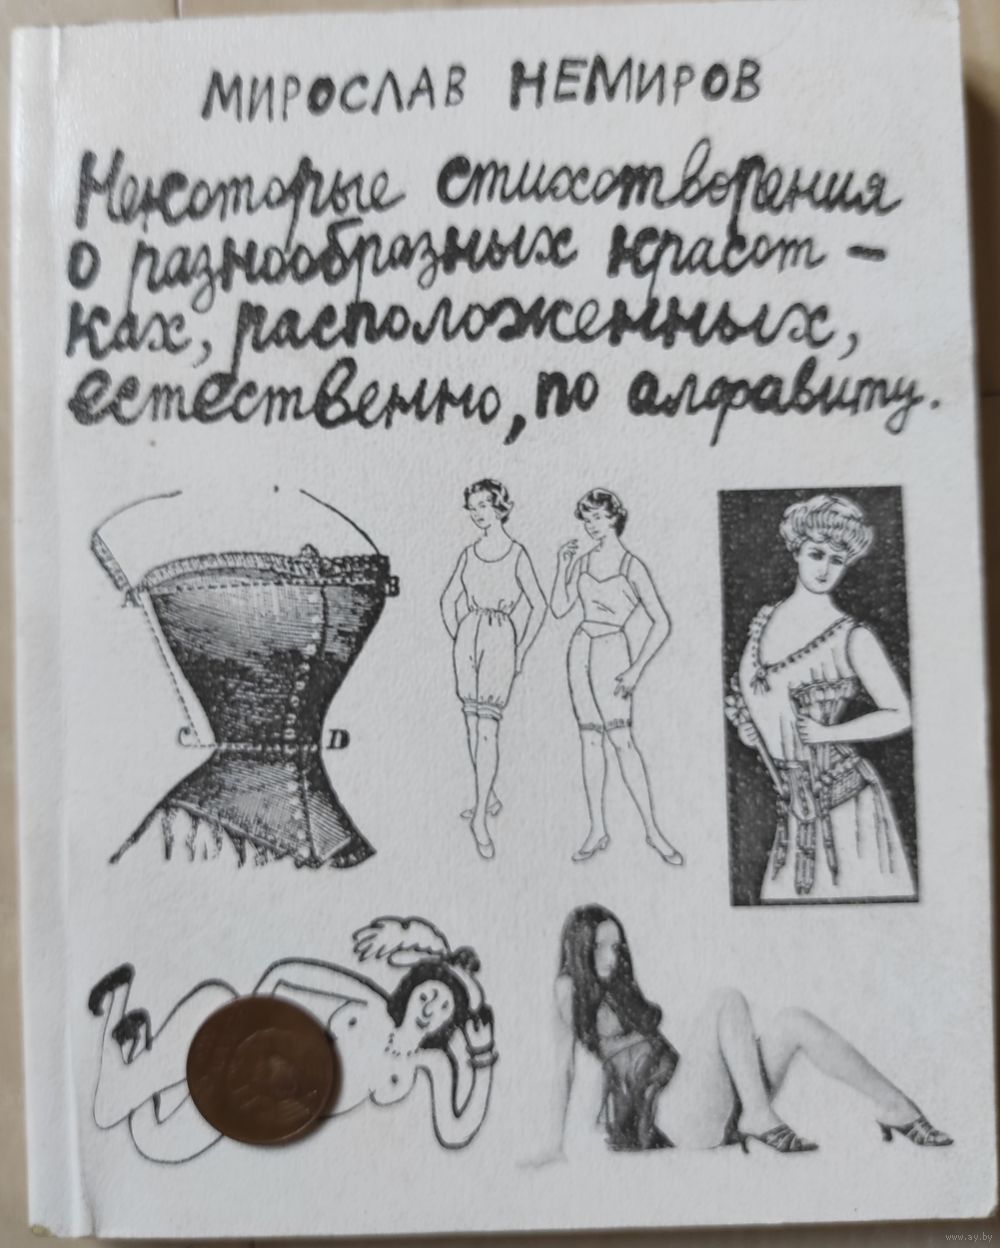 МИРОСЛАВ НЕМИРОВ
Некоторые стихотворения
о разнообразных красот-
ках, расположенных,
естественно, по алфавиту.
A B
C D
www.ay.by